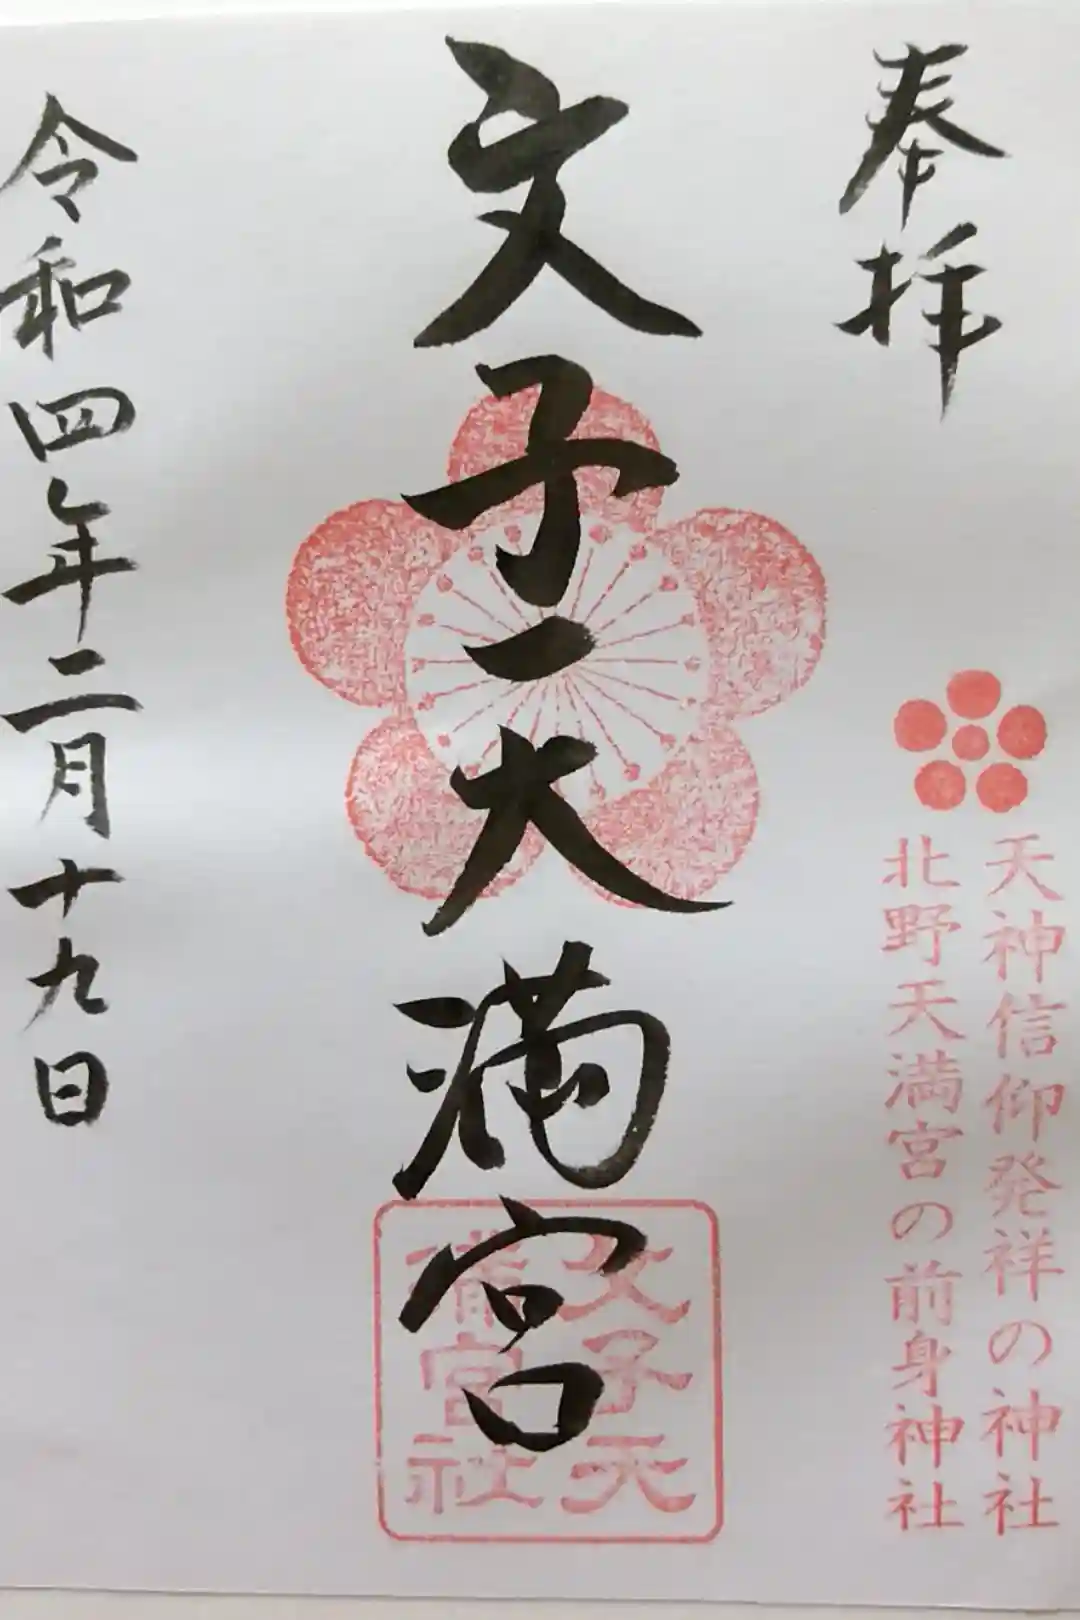 奉拝
天神信仰発祥の神社
北野天満宮の前身神社
文子天満宮
文子天
満宮社
令和四年二月十九日